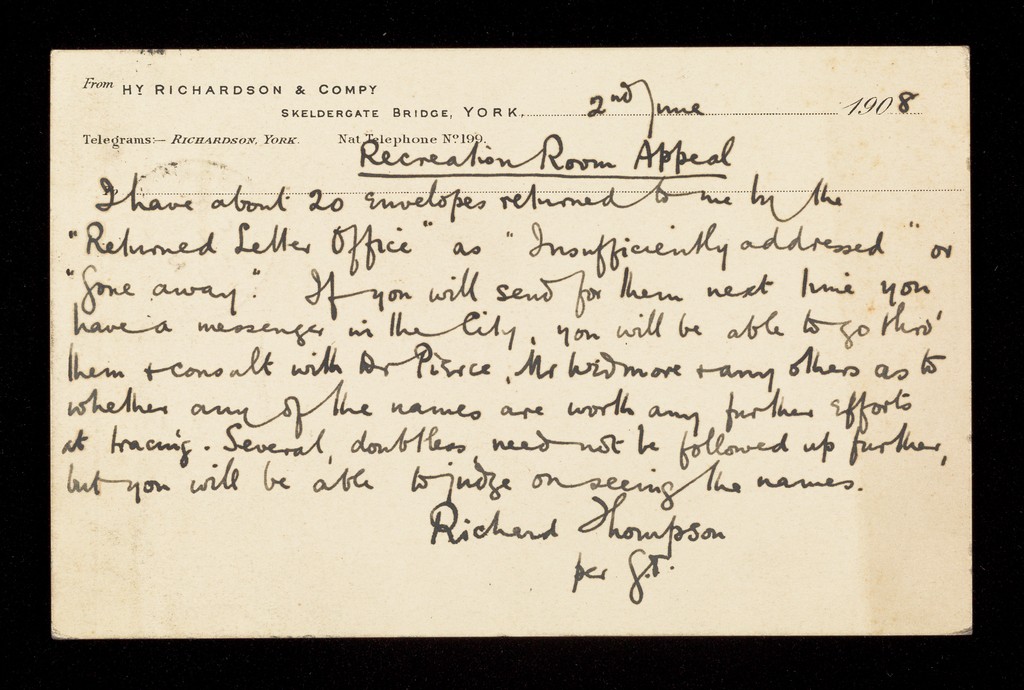 From HY RICHARDSON & COMPY
SKELDERGATE BRIDGE, YORK, 2nd June 1908
Telegrams:— RICHARDSON, YORK. Nat Telephone No 199.
Recreation Room Appeal
I have about 20 envelopes returned to me by the
"Returned Letter Office" as "Insufficiently addressed" or
"Gone away". If you will send for them next time you
have a messenger in the City, you will be able to go thro'
them & consult with Dr Pierce, Mr Wedmore & any others as to
whether any of the names are worth any further efforts
at tracing. Several, doubtless, need not be followed up further,
but you will be able to judge on seeing the names.
Richard Thompson
per G.T.